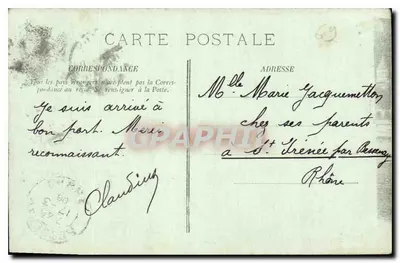 CARTE POSTALE
CORRESPONDANCE
Tous les pays étrangers n'acceptent pas la Corres-
pondance au recto. Se renseigner à la Poste.
Je suis arrivé à
bon port. Merci
reconnaissant.
Claudius
ADRESSE
Mlle Marie Jacquemetton
chez ses parents
à St Irénée par
Rhône